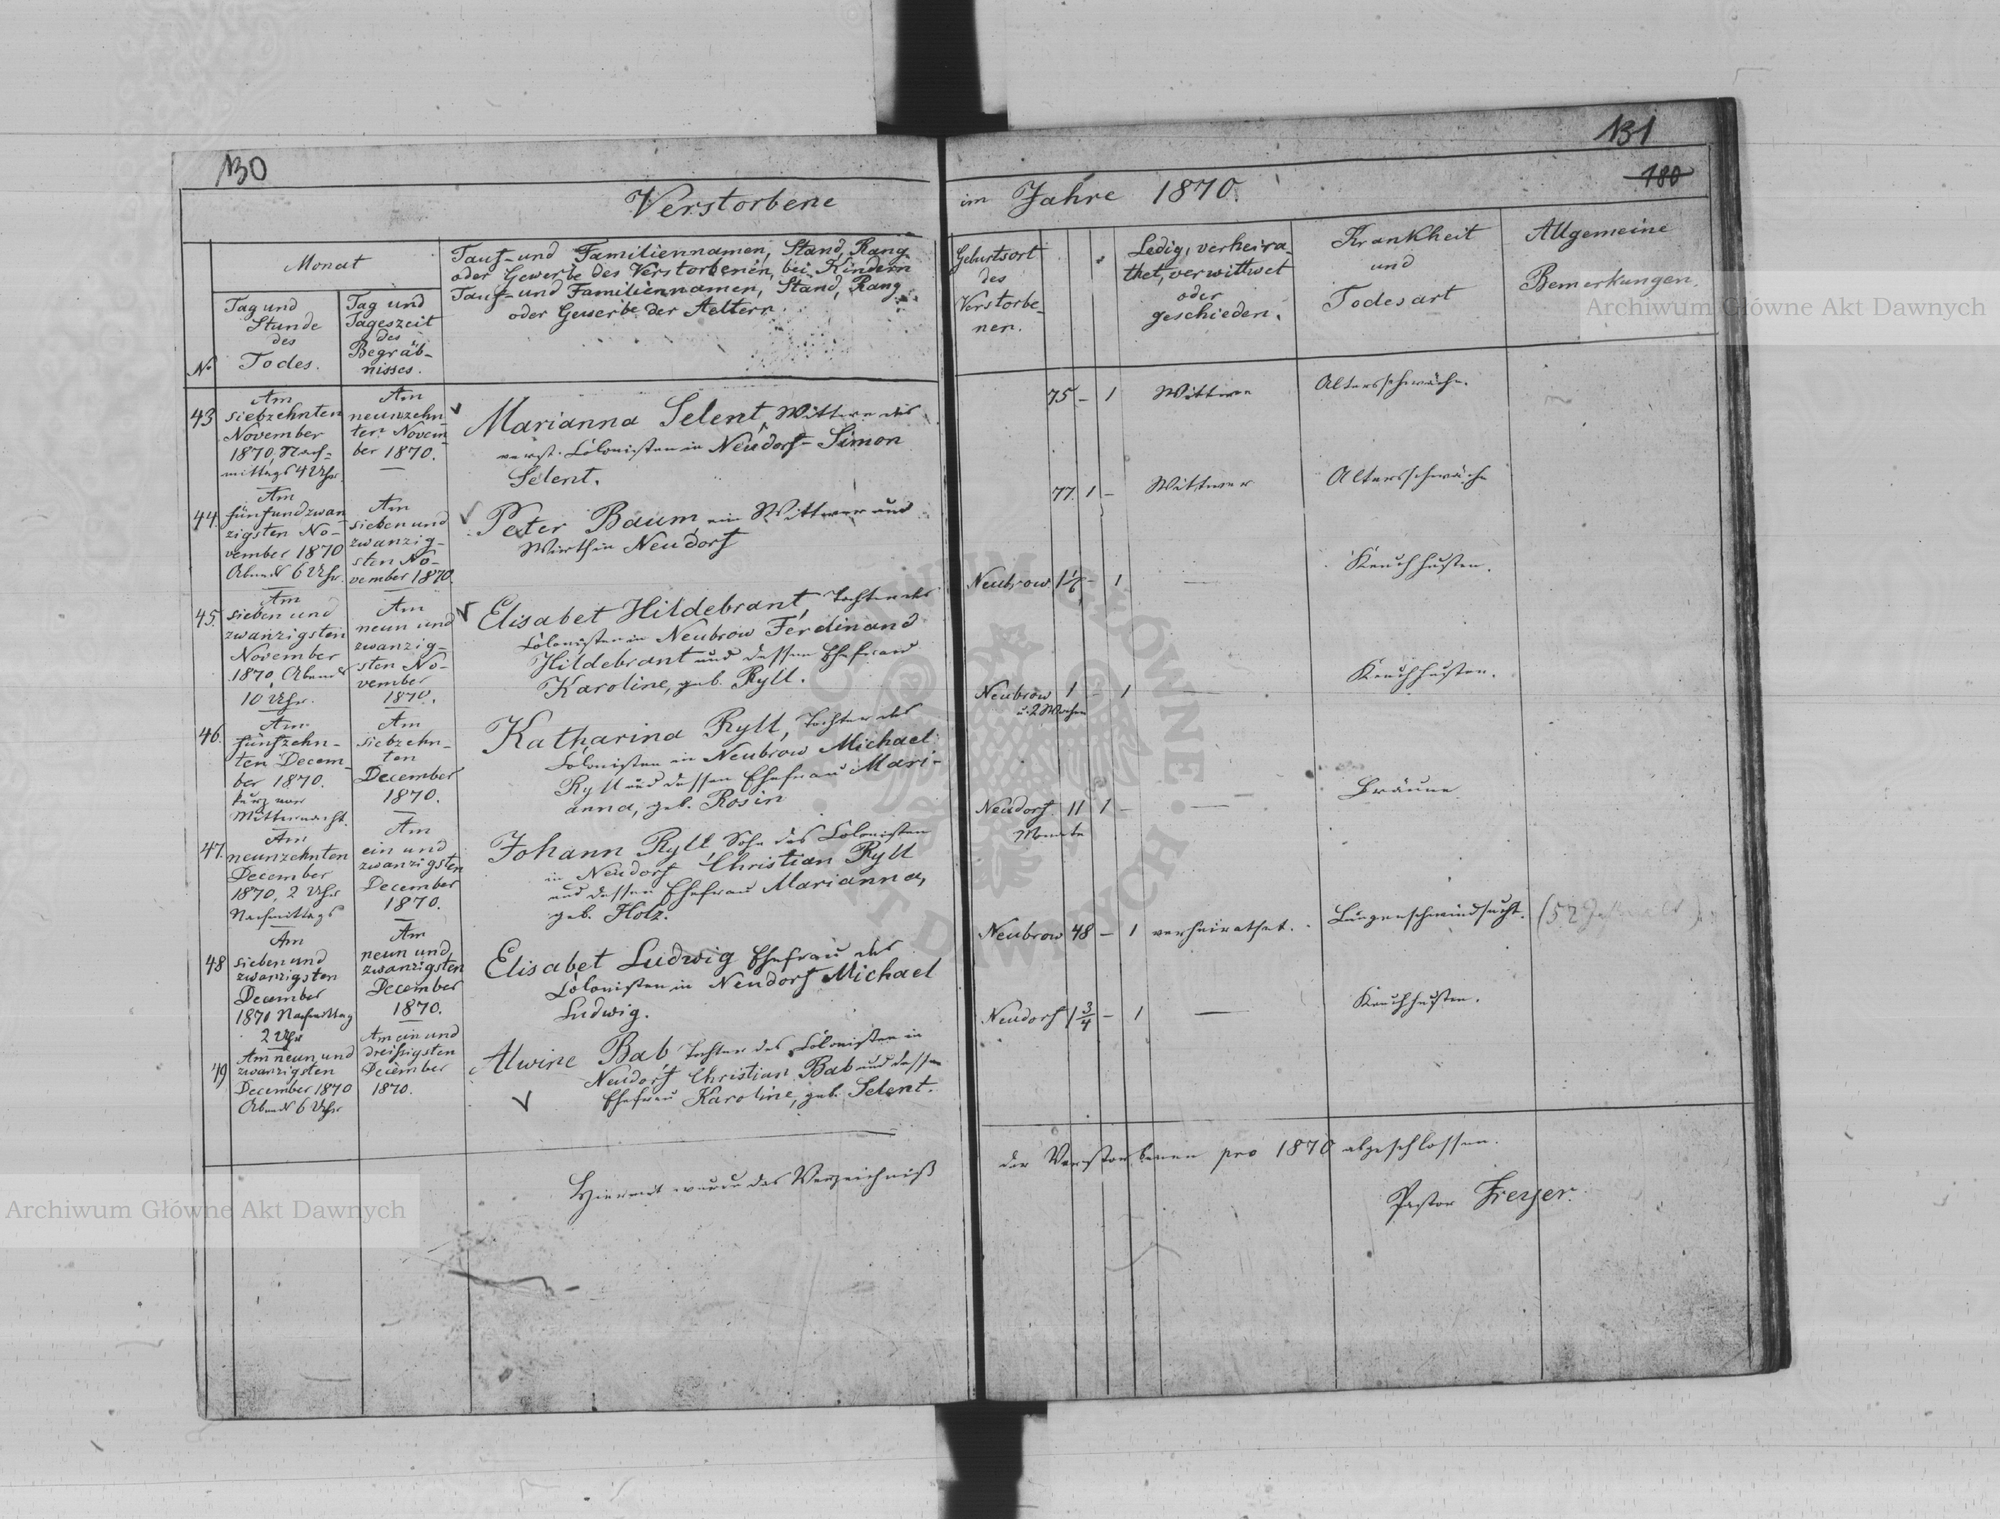 130
Verstorbene
Monat
Tauf- und Familiennamen, Stand, Rang
oder Gewerbe des Verstorbenen, bei Kindern
Tauf- und Familiennamen, Stand, Rang
oder Gewerbe der Aeltern.
No
Tag und
Stunde
des
Todes.
Tag und
Tageszeit
des
Begräb-
nisses.
43
Am
siebzehnten
November
1870, Nach-
mittags 4 Uhr
Am
neunzehn-
ten Novem-
ber 1870.
Marianna Selent, Wittwe des
verst. Colonisten in Neudorf - Simon
Selent.
44.
Am
fünfundzwan-
zigsten No-
vember 1870
Abends 6 Uhr.
Am
sieben und
zwanzig-
sten No-
vember 1870.
Peter Baum, ein Wittwer und
Wirth in Neudorf
45.
Am
sieben und
zwanzigsten
November
1870, Abends
10 Uhr.
Am
neun und
zwanzig-
sten No-
vember
1870.
Elisabet Hildebrant, Tochter des
Colonisten in Neubrow Ferdinand
Hildebrant und dessen Ehefrau
Karoline, geb. Ryll.
46.
Am
fünfzehn-
ten Decem-
ber 1870.
kurz vor
Mitternacht.
Am
siebzehn-
ten
December
1870.
Katharina Ryll, Tochter des
Colonisten in Neubrow Michael
Ryll und dessen Ehefrau Mari-
anna, geb. Rosin
47.
Am
neunzehnten
December
1870, 2 Uhr
Nachmittags
Am
ein und
zwanzigsten
December
1870.
Johann Ryll Sohn des Colonisten
in Neudorf Christian Ryll
und dessen Ehefrau Marianna,
geb. Holz.
48
Am
sieben und
zwanzigsten
December
1870 Nachmittag
2 Uhr
Am
neun und
zwanzigsten
December
1870.
Elisabet Ludwig Ehefrau des
Colonisten in Neudorf Michael
Ludwig.
49
Am neun und
zwanzigsten
December 1870
Abends 6 Uhr
Am ein und
dreißigsten
December
1870.
Alwine Bab Tochter des Colonisten in
Neudorf Christian Bab und dessen
Ehefrau Karoline, geb. Selent.
Hiermit wurde das Verzeichniß
131
180
im Jahre 1870.
Geburtsort
des
Verstorbe-
nen.
Ledig, verheira-
thet, verwittwet
oder
geschieden.
Krankheit
und
Todesart
Allgemeine
Bemerkungen.
75 - 1 Wittwe Altersschwäche.
77. 1 - Wittwer Altersschwäche
Neubrow 1½ - 1 — Keuchhusten.
Neubrow 1 - 1 — Keuchhusten.
u. 2 Wochen
Neudorf 11 1 - — Bräune
Monate
Neubrow 48 - 1 verheirathet. Lungenschwindsucht. (52
Neudorf 1 3/4 - 1 — Keuchhusten.
der Verstorbenen pro 1870 abgeschlossen.
Pastor Freyer.
Archiwum Główne Akt Dawnych
Archiwum Główne Akt Dawnych
ARCHIWUM GŁÓWNE AKT DAWNYCH